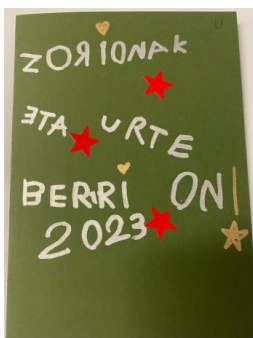 ZORIONAK
ETA URTE
BERRI ON!
2023